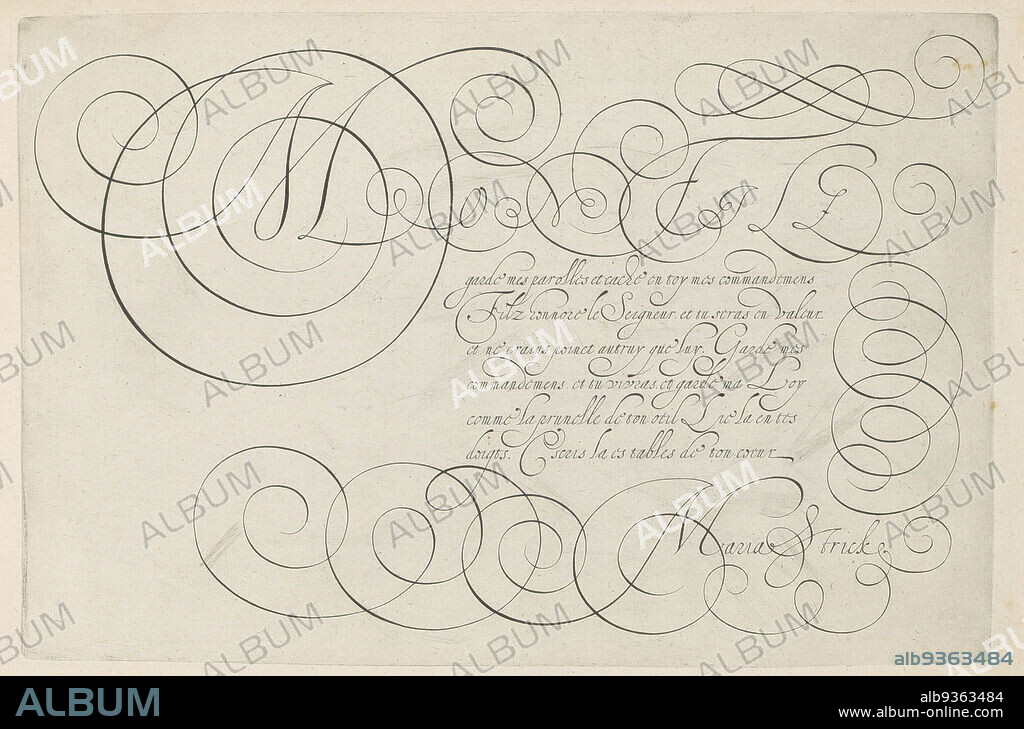 Mon Filz
garde mes parolles et cache en toy mes commandemens
Filz honnore le Seigneur, et tu seras en valeur
et ne crains poinct autruy que luy. Garde mes
commandemens, et tu vivras, et garde ma Loy
comme la prunelle de ton oeil Lie la en tes
doigts. Escris la es tables de ton coeur
Maria Strick.
ALBUM
alb9363484
ALBUM
alb9363484
www.album-online.com